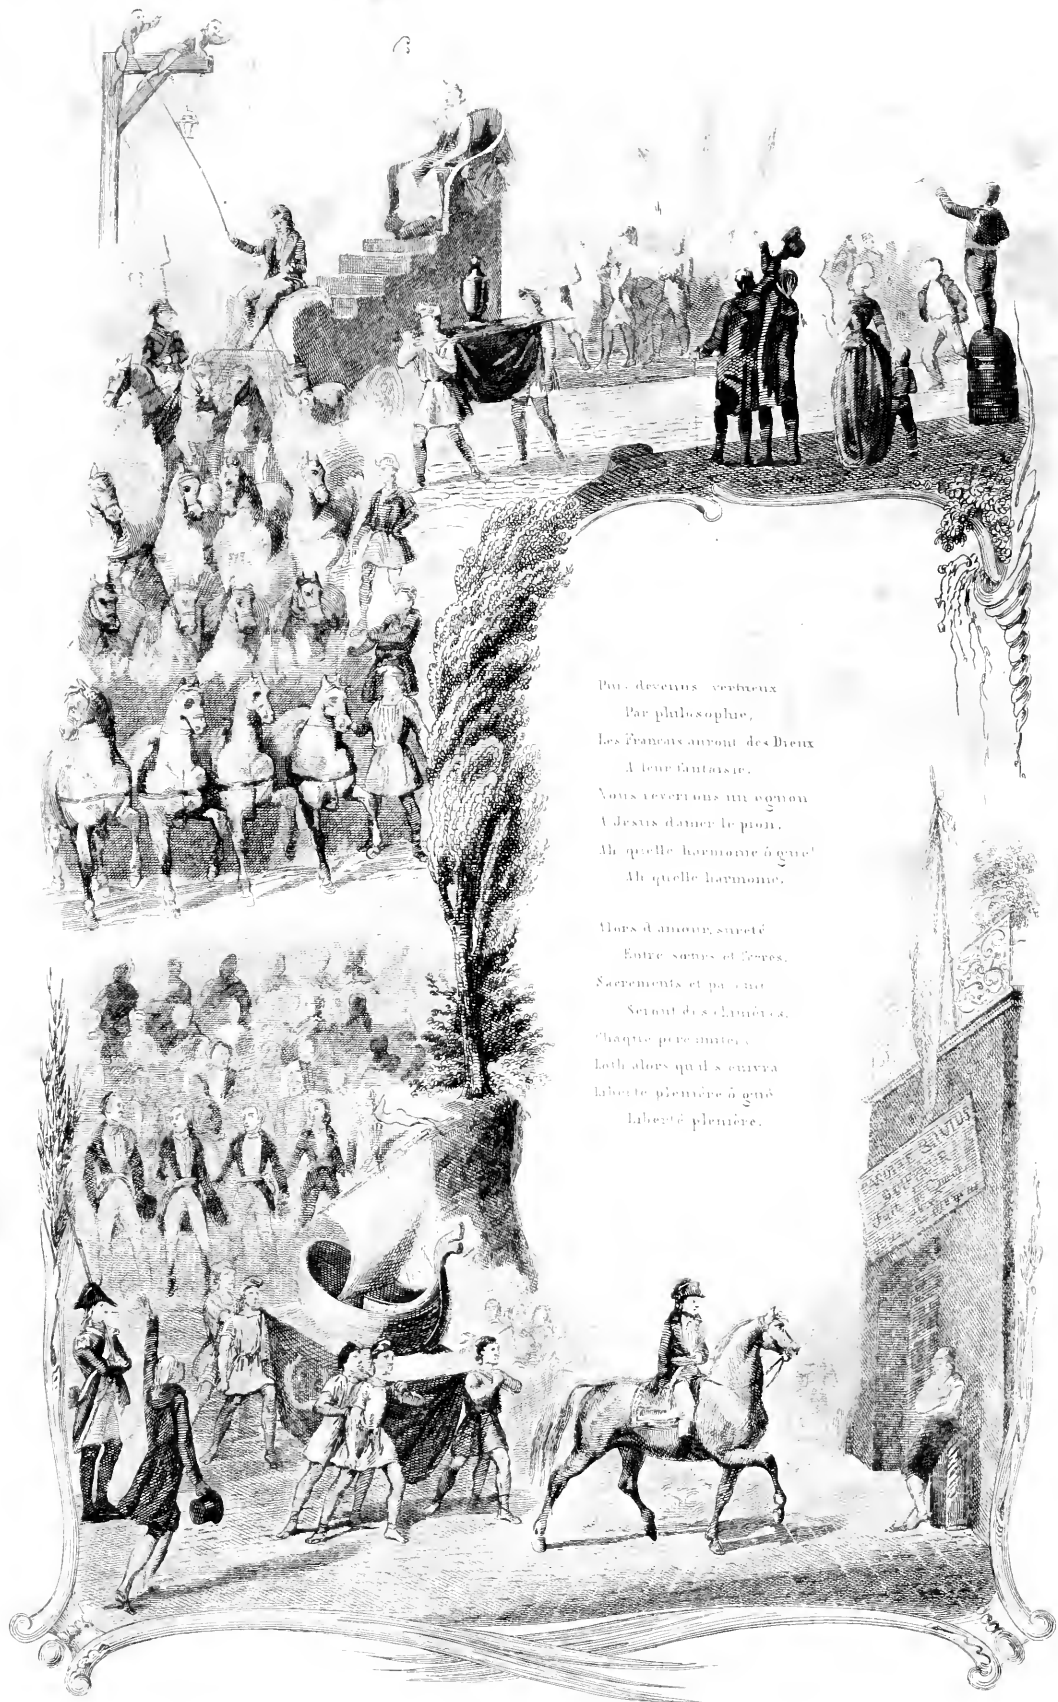 Puis devenus vertueux
Par philosophie,
Les Français auront des Dieux
A leur fantaisie.
Nous reverrons un ognon
A Jésus damer le pion,
Ah quelle harmonie ô gué!
Ah quelle harmonie.
Alors d'amour, sureté
Entre sœurs et frères,
Sacrements et
Seront des
Chaque père imitera
Loth alors qu'il s'enivra
Liberté plenière ô gué
Liberté plenière.